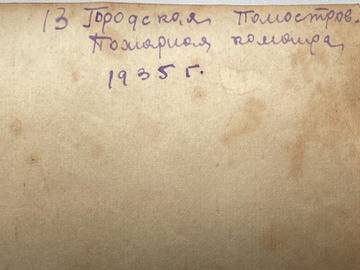 13 Городская Полюстров.
Пожарная команда
1935 г.